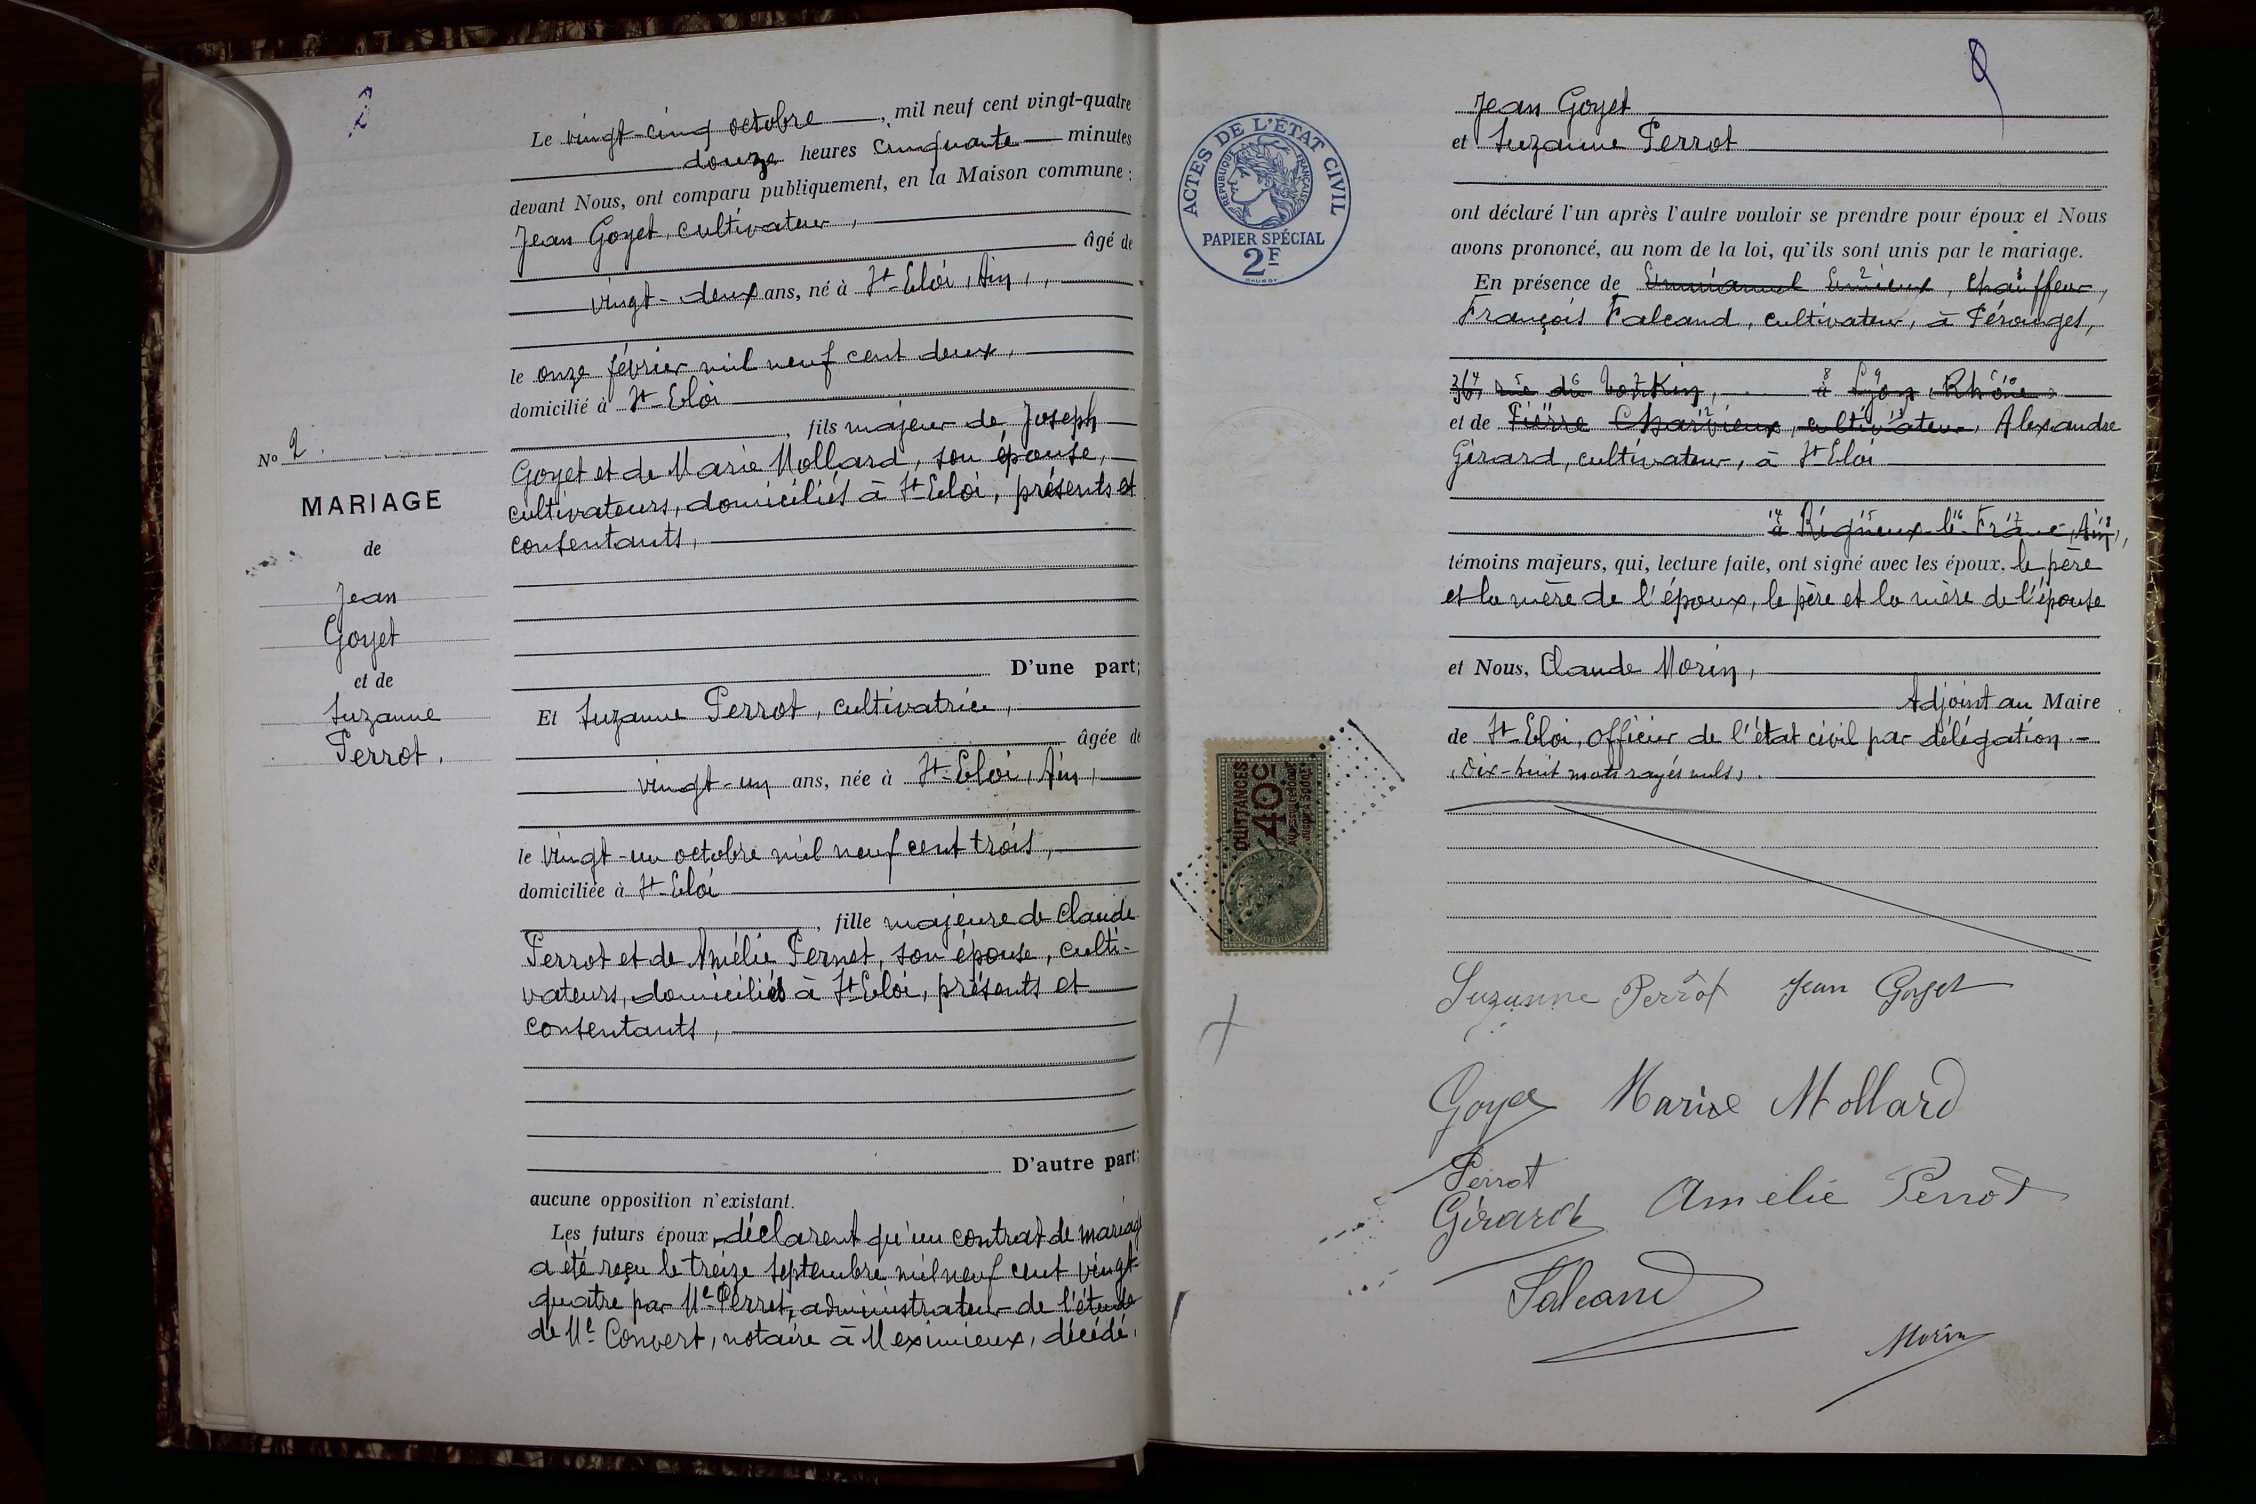 2
Le vingt-cinq octobre, mil neuf cent vingt-quatre
douze heures cinquante minutes
devant Nous, ont comparu publiquement, en la Maison commune :
Jean Goyet, cultivateur,
âgé de
vingt-deux ans, né à St-Eloi, Ain,
le onze février mil neuf cent deux,
domicilié à St-Eloi
, fils majeur de Joseph
Goyet et de Marie Mollard, son épouse,
cultivateurs, domiciliés à St-Eloi, présents et
consentants,
D'une part;
Et Suzanne Perrot, cultivatrice,
âgée de
vingt-un ans, née à St-Eloi, Ain,
le vingt-un octobre mil neuf cent trois,
domiciliée à St-Eloi
, fille majeure de Claude
Perrot et de Amélie Pernet, son épouse, culti-
vateurs, domiciliés à St Eloi, présents et
consentants,
D'autre part;
aucune opposition n'existant.
Les futurs époux déclarent qu'un contrat de mariage
a été reçu le treize septembre mil neuf cent vingt-
quatre par Me Perret, administrateur de l'étude
de Me Convert, notaire à Meximieux, décédé.
No 2.
MARIAGE
de
Jean
Goyet
et de
Suzanne
Perrot.
9
ACTES DE L'ÉTAT CIVIL
RÉPUBLIQUE FRANÇAISE
PAPIER SPÉCIAL
2F
QUITTANCES
40c
Jean Goyet
et Suzanne Perrot
ont déclaré l'un après l'autre vouloir se prendre pour époux et Nous
avons prononcé, au nom de la loi, qu'ils sont unis par le mariage.
En présence de Emmanuel, chauffeur,
François Falcand, cultivateur, à Pérouges,
rue du à Lyon Rhône,
et de Pierre Charvieux, cultivateur, Alexandre
Girard, cultivateur, à St Eloi
à Rigneux-le-Franc, Ain,
témoins majeurs, qui, lecture faite, ont signé avec les époux, le père
et la mère de l'époux, le père et la mère de l'épouse
et Nous, Claude Morin,
Adjoint au Maire
de St-Eloi, officier de l'état civil par délégation.-
(Dix-huit mots rayés nuls).
Suzanne Perrot Jean Goyet
Goyet Marie Mollard
Perrot
Girard Amélie Perrot
Falcand
Morin